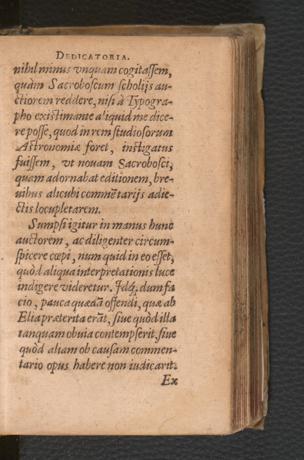 DEDICATORIA.
nihil minus vnquam cogitassem,
quàm Sacroboscum scholijs au-
ctiorem reddere, nisi à Typogra-
pho existimante aliquid me dice-
re posse, quod in rem studiosorum
Astronomiæ foret, instigatus
fuissem, vt nouam Sacrobosci,
quam adornabat editionem, bre-
uibus alicubi commẽtarijs adie-
ctis locupletarem.
Sumpsi igitur in manus hunc
auctorem, ac diligenter circum-
spicere cœpi, num quid in eo esset,
quòd aliqua interpretationis luce
indigere videretur. Idq́; dum fa
cio, pauca quædã offendi, quæ ab
Elia præterita erãt, siue quòd illa
tanquam obuia contempserit, siue
quòd aliam ob causam commen-
tario opus habere non iudicarit.
Ex